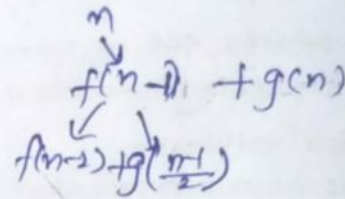 n
f(n-1) + g(n)
f(n-2)+g(n-1/2)